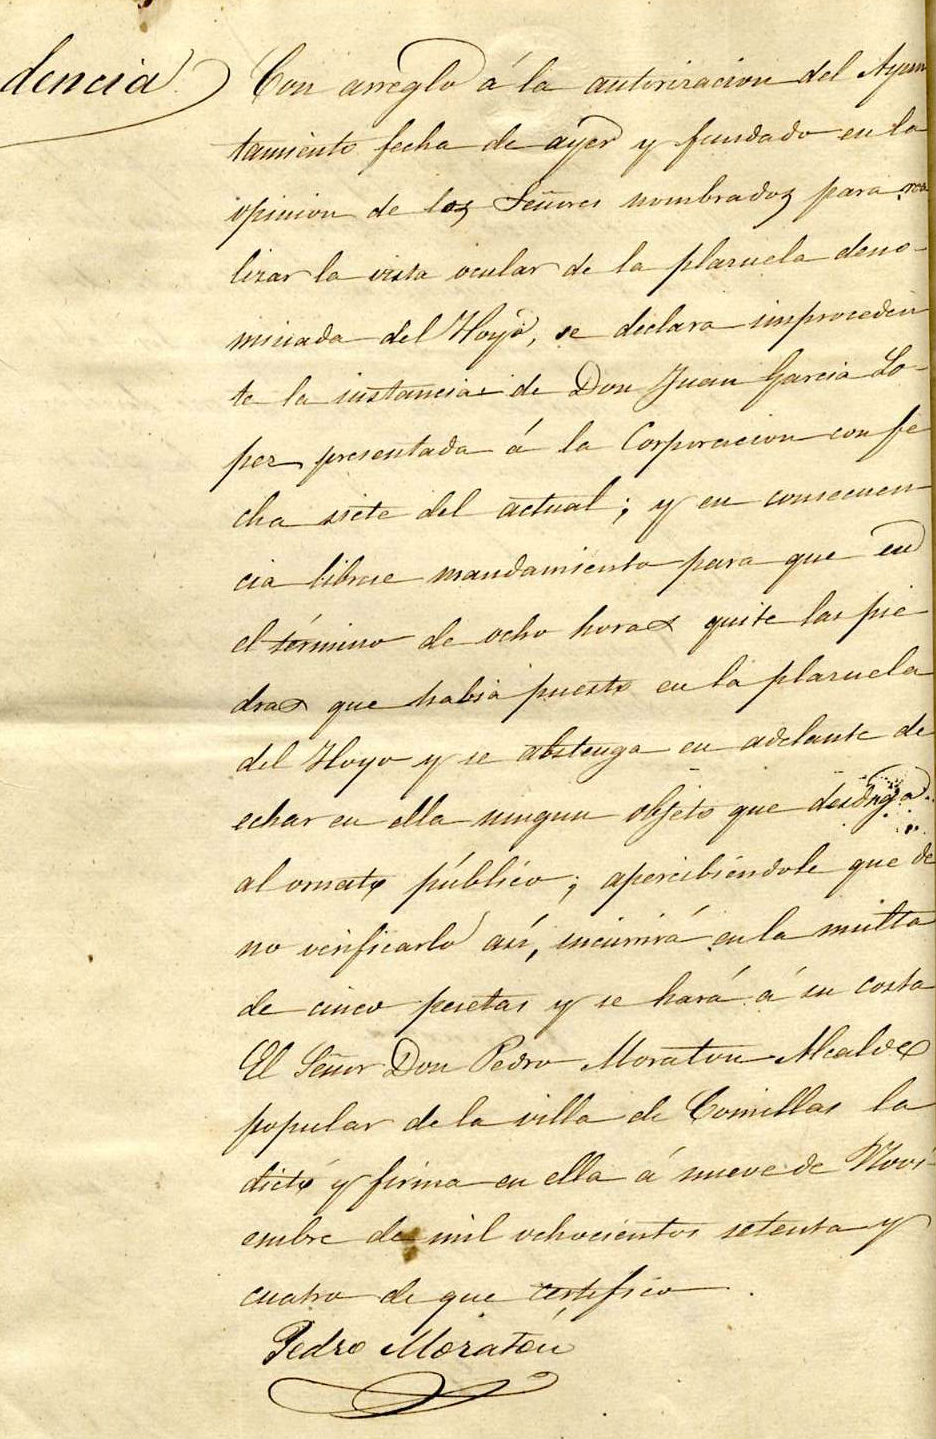 dencia
Con arreglo á la autorizacion del Ayun
tamiento fecha de ayer y fundado en la
opinion de los Señores nombrados para rea
lizar la vista ocular de la plazuela deno-
minada del Hoyo, se declara improceden
te la instancia de Don Juan Garcia Lo-
pez, presentada á la Corporacion con fe
cha siete del actual; y en consecuen
cia librese mandamiento para que en
el término de ocho horas quite las pie
dras que habia puesto en la plazuela
del Hoyo y se abstenga en adelante de
echar en ella ningun objeto que desdiga
al ornato público; apercibiéndole que de
no verificarlo así, incurrirá en la multa
de cinco pesetas y se hará á su costa
El Señor Don Pedro Moraton Alcalde
popular de la villa de Comillas la
dictó y firma en ella á nueve de Novi-
embre de mil ochocientos setenta y
cuatro de que certifico.
Pedro Moratón